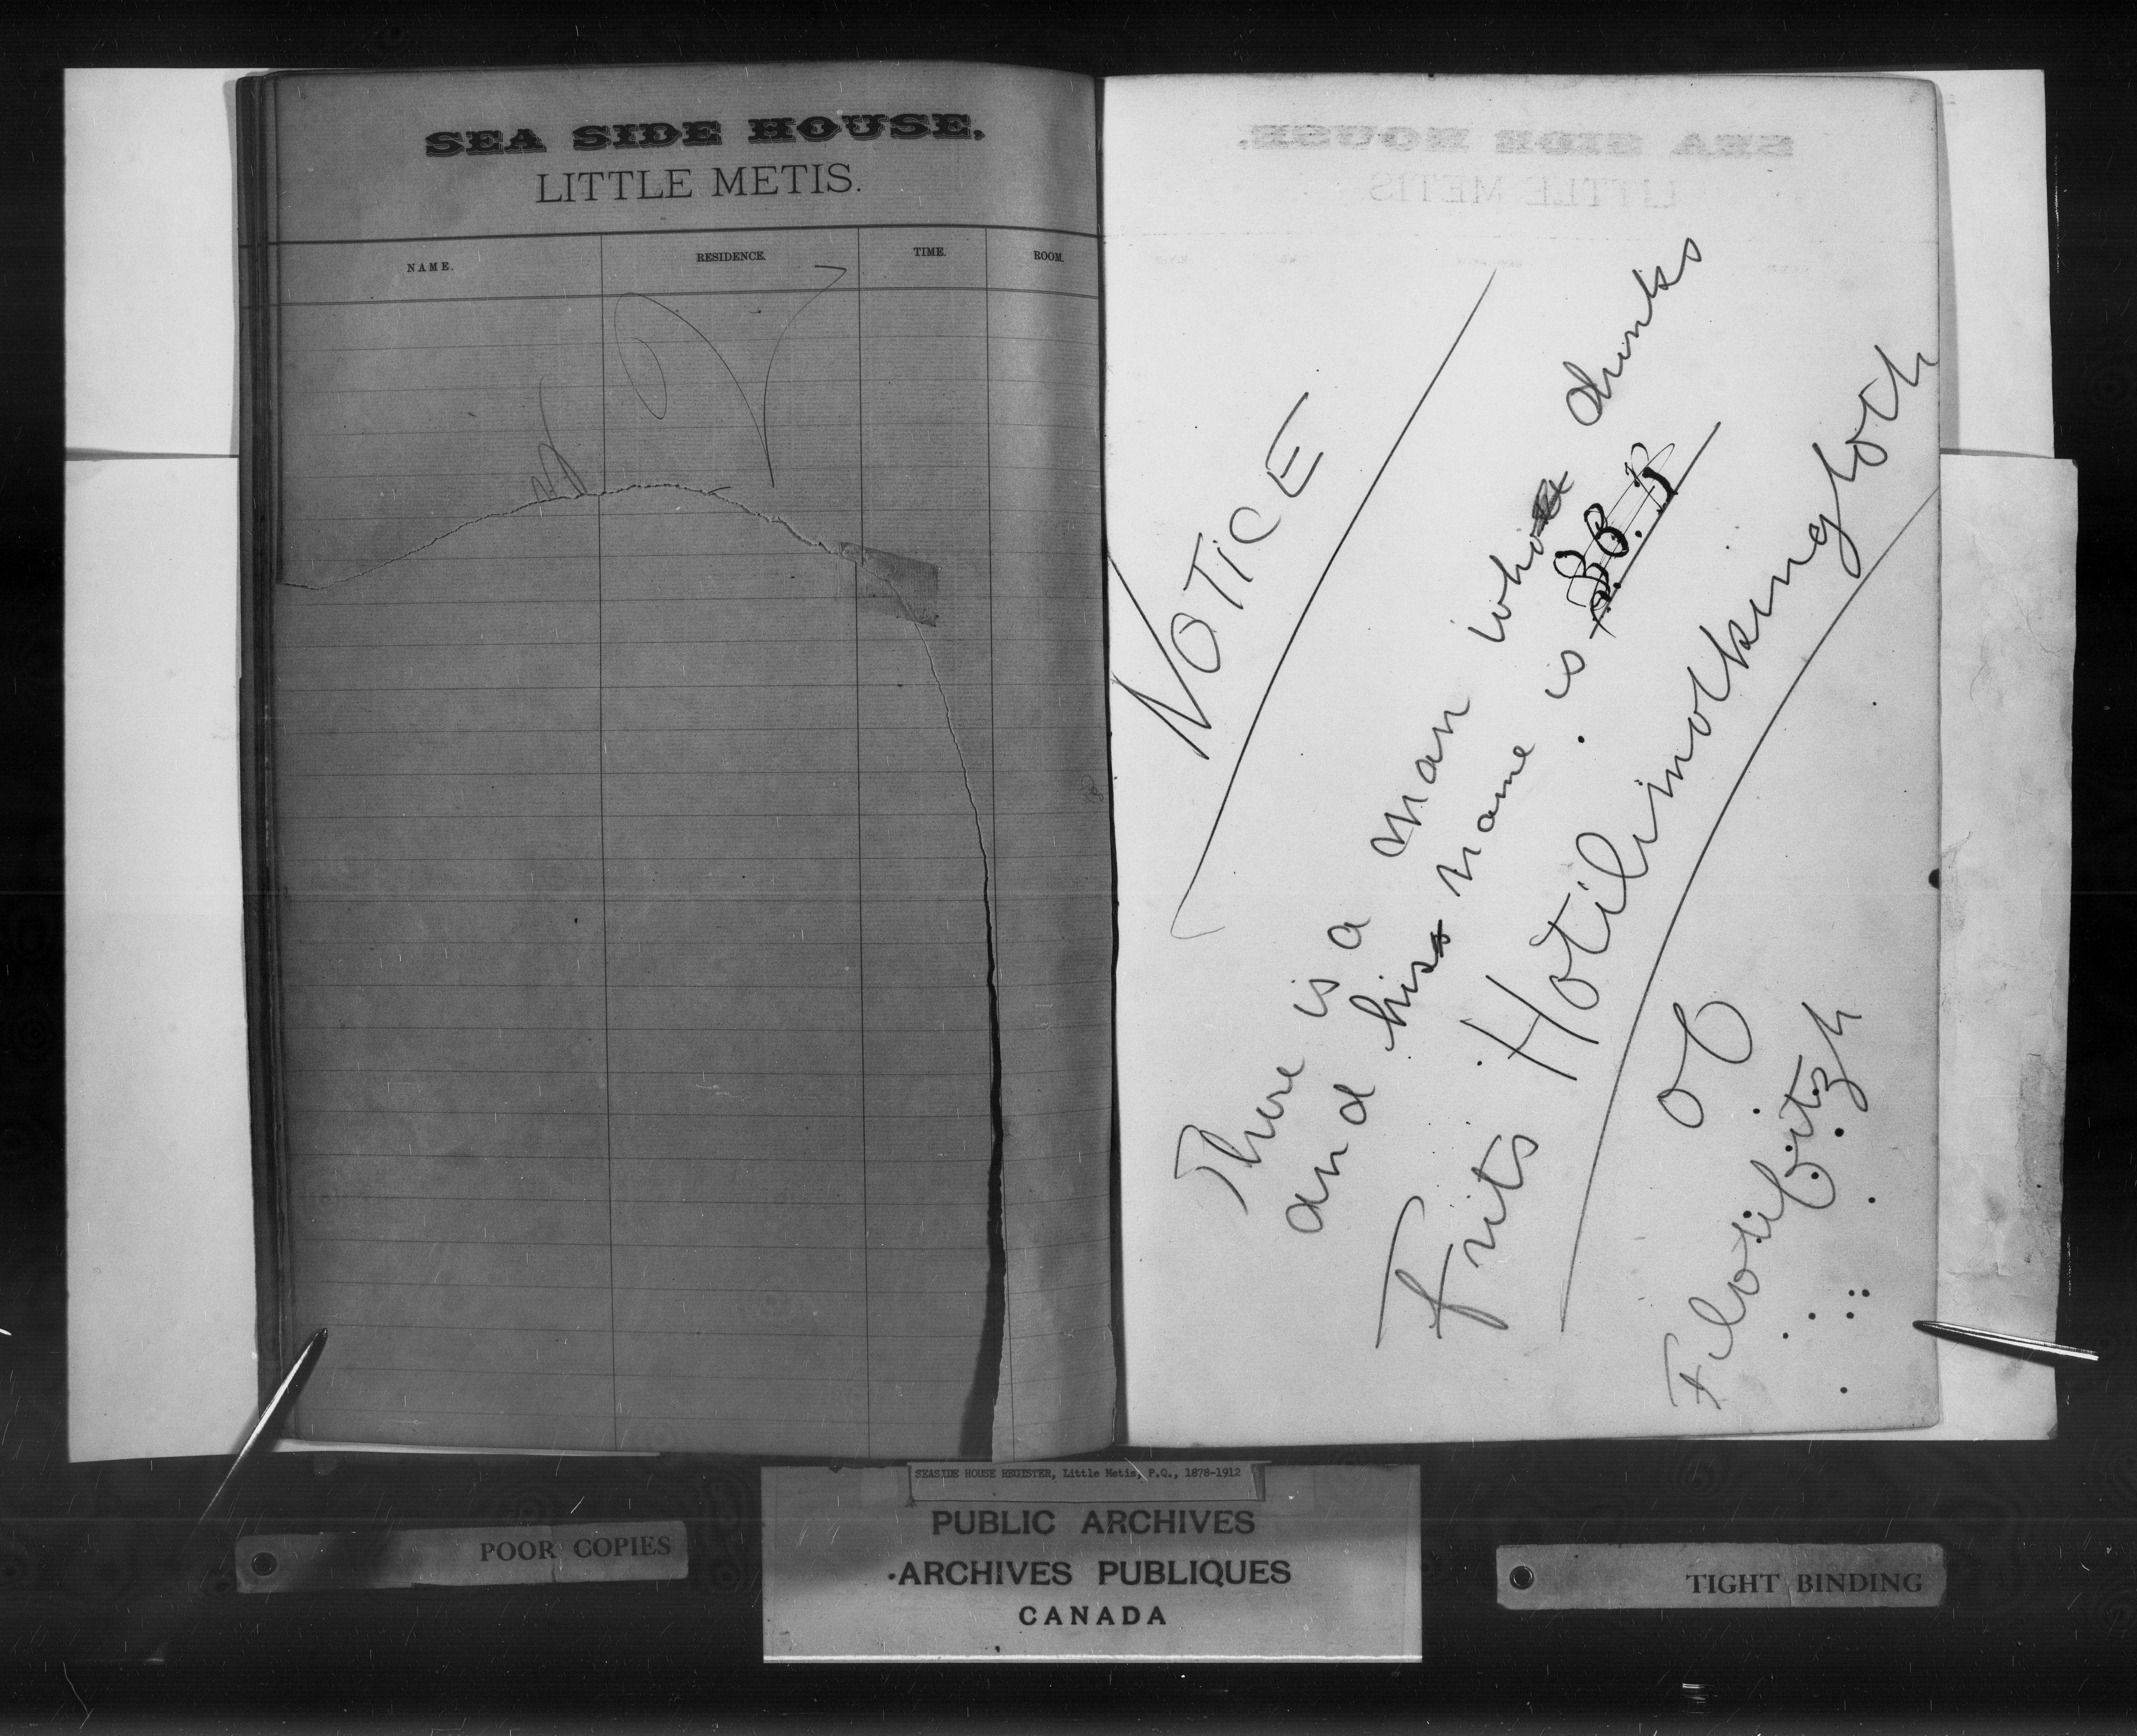 SEA SIDE HOUSE,
LITTLE METIS.
NAME.
RESIDENCE.
TIME.
ROOM.
NOTICE
There is a man who drinks
and his name is B.B.
Frits Hotilimotkingloth
of
Filotifitzh
SEASIDE HOUSE REGISTER, Little Metis, P.Q., 1878-1912
PUBLIC ARCHIVES
ARCHIVES PUBLIQUES
CANADA
POOR COPIES
TIGHT BINDING